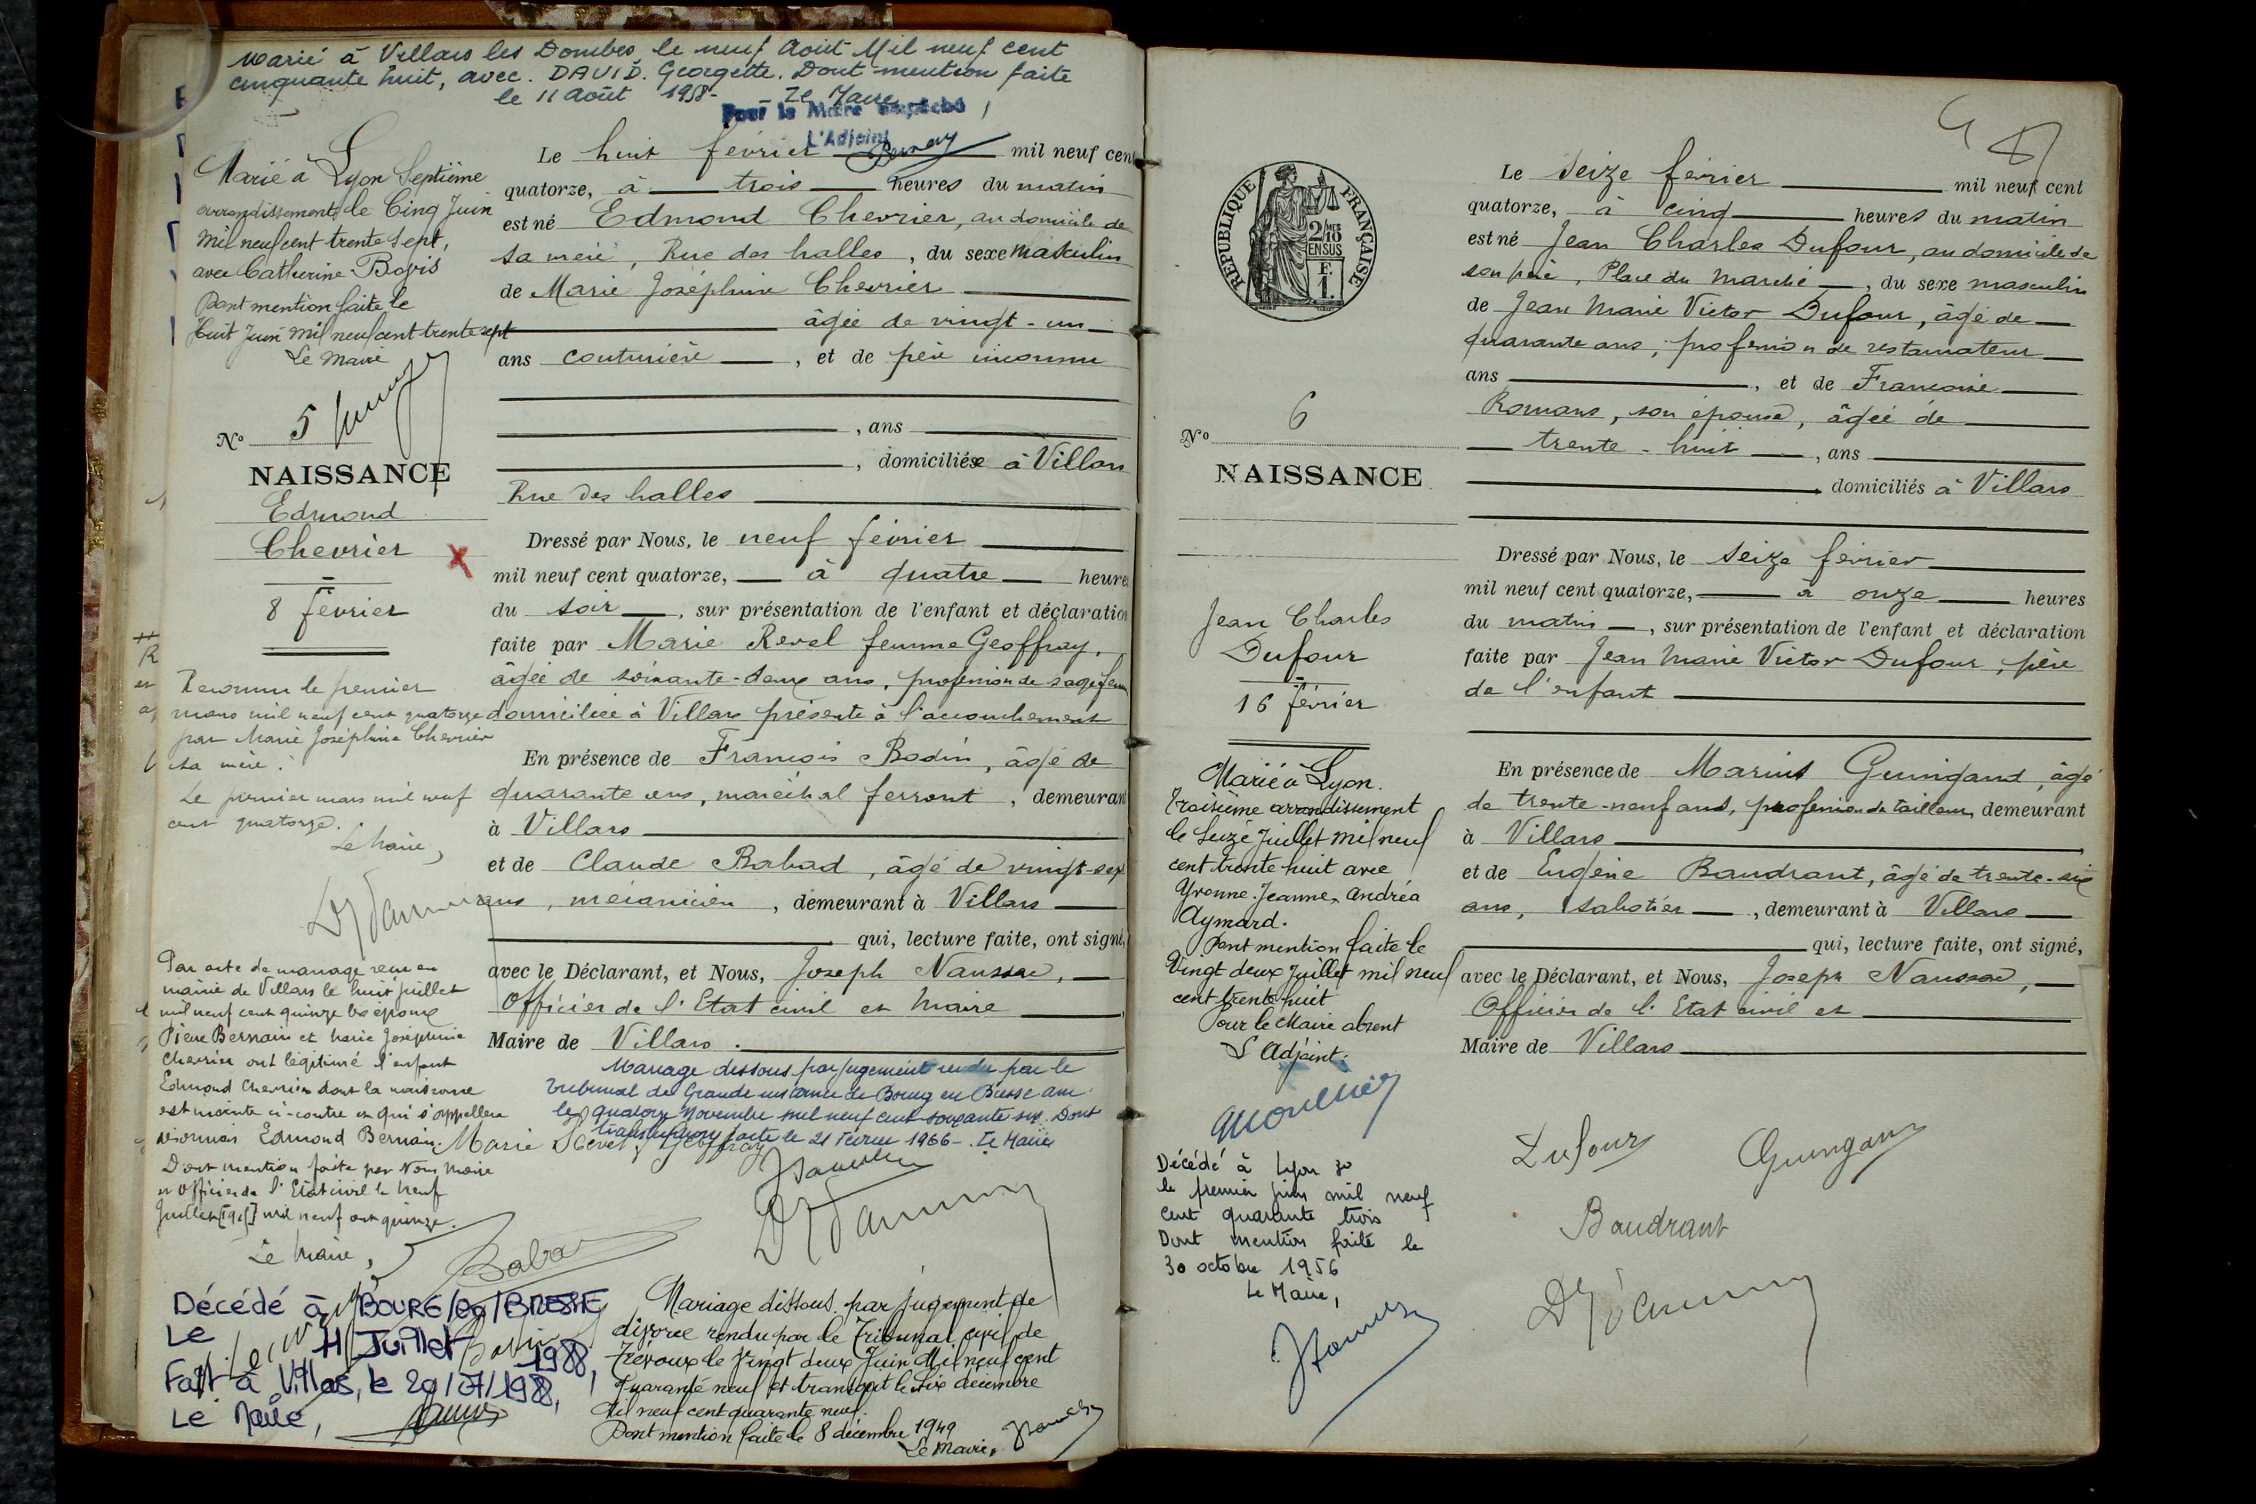 Marié à Villars les Dombes, le neuf Août Mil neuf cent
cinquante huit, avec. DAVID. Georgette. Dont mention faite
le 11 Août 1958 - Le Maire
Pour le Maire empêché
L'Adjoint
Marié à Lyon Septième
arrondissement, le Cinq Juin
Mil neuf cent trente sept,
avec Catherine
Dont mention faite le
huit Juin Mil neuf cent trente sept
Le Maire
No 5
NAISSANCE
Edmond
Chevrier
8 février
Reconnu le premier
mars mil neuf cent quatorze
par Marie Joséphine Chevrier
sa mère.
Le premier mars mil neuf
cent quatorze.
Le Maire,
Par acte de mariage reçu en
mairie de Villars le huit juillet
mil neuf cent quinze les époux
Pierre Bernain et Marie Joséphine
Chevrier ont légitimé l'enfant
Edmond Chevrier dont la naissance
est inscrite ci-contre et qui s'appellera
désormais Edmond Bernain.
Dont mention faite par Nous Maire
et Officier de l'Etat civil le neuf
Juillet mil neuf cent quinze.
Le Maire,
Décédé à BOURG/en/BRESSE
Le 11 Juillet 1988,
Fait à Villars, le 20/07/1988,
Le Maire,
Le huit février mil neuf cent
quatorze, à trois heures du matin
est né Edmond Chevrier, au domicile de
sa mère, Rue des halles, du sexe masculin
de Marie Joséphine Chevrier
âgée de vingt-un
ans couturière, et de père inconnu
, ans
, domiciliée à Villars
Rue des halles
Dressé par Nous, le neuf février
mil neuf cent quatorze, à quatre heures
du soir, sur présentation de l'enfant et déclaration
faite par Marie Revel femme Geoffray,
âgée de soixante-deux ans, profession de sage femme
domiciliée à Villars présente à l'accouchement
En présence de François Bodin, âgé de
quarante ans, maréchal ferrant, demeurant
à Villars
et de Claude Babad, âgé de vingt-sept
ans, mécanicien, demeurant à Villars
qui, lecture faite, ont signé,
avec le Déclarant, et Nous, Joseph Naussac,
Officier de l'Etat civil et Maire
Maire de Villars.
Mariage dissous par jugement rendu par le
Tribunal de Grande instance de Bourg en Bresse ain
le quatorze Novembre mil neuf cent soixante six. Dont
transcription faite le 21 Février 1966 - Le Maire
Marie Revel f Geoffray
Babad
Mariage dissous par jugement de
divorce rendu par le Tribunal civil de
Trévoux le vingt deux Juin Mil neuf cent
quarante neuf et transcrit le six décembre
Mil neuf cent quarante neuf.
Dont mention faite le 8 décembre 1949
Le Maire,
REPUBLIQUE FRANÇAISE
2/10
EN SUS
No 6
NAISSANCE
Jean Charles
Dufour
16 février
Marié à Lyon.
Troisième arrondissement
le Seize Juillet Mil neuf
cent trente huit avec
Yvonne. Jeanne. Andréa
Aymard.
Dont mention faite le
Vingt deux Juillet mil neuf
cent trente huit
Pour le Maire absent
L'Adjoint.
Décédé à Lyon 3e
le premier juin mil neuf
cent quarante trois
Dont mention faite le
30 octobre 1956
Le Maire,
Le Seize février mil neuf cent
quatorze, à cinq heures du matin
est né Jean Charles Dufour, au domicile de
son père, Place du Marché, du sexe masculin
de Jean Marie Victor Dufour, âgé de
quarante ans, profession de restaurateur
ans , et de Françoise
Romans, son épouse, âgée de
trente-huit, ans
domiciliés à Villars
Dressé par Nous, le seize février
mil neuf cent quatorze, à onze heures
du matin, sur présentation de l'enfant et déclaration
faite par Jean Marie Victor Dufour, père
de l'enfant
En présence de Marius Guingand, âgé
de trente-neuf ans, profession de tailleur, demeurant
à Villars
et de Eugène Baudrant, âgé de trente-six
ans, sabotier, demeurant à Villars
qui, lecture faite, ont signé,
avec le Déclarant, et Nous, Joseph Naussac,
Officier de l'Etat civil et
Maire de Villars
Dufour
Guingand
Baudrant